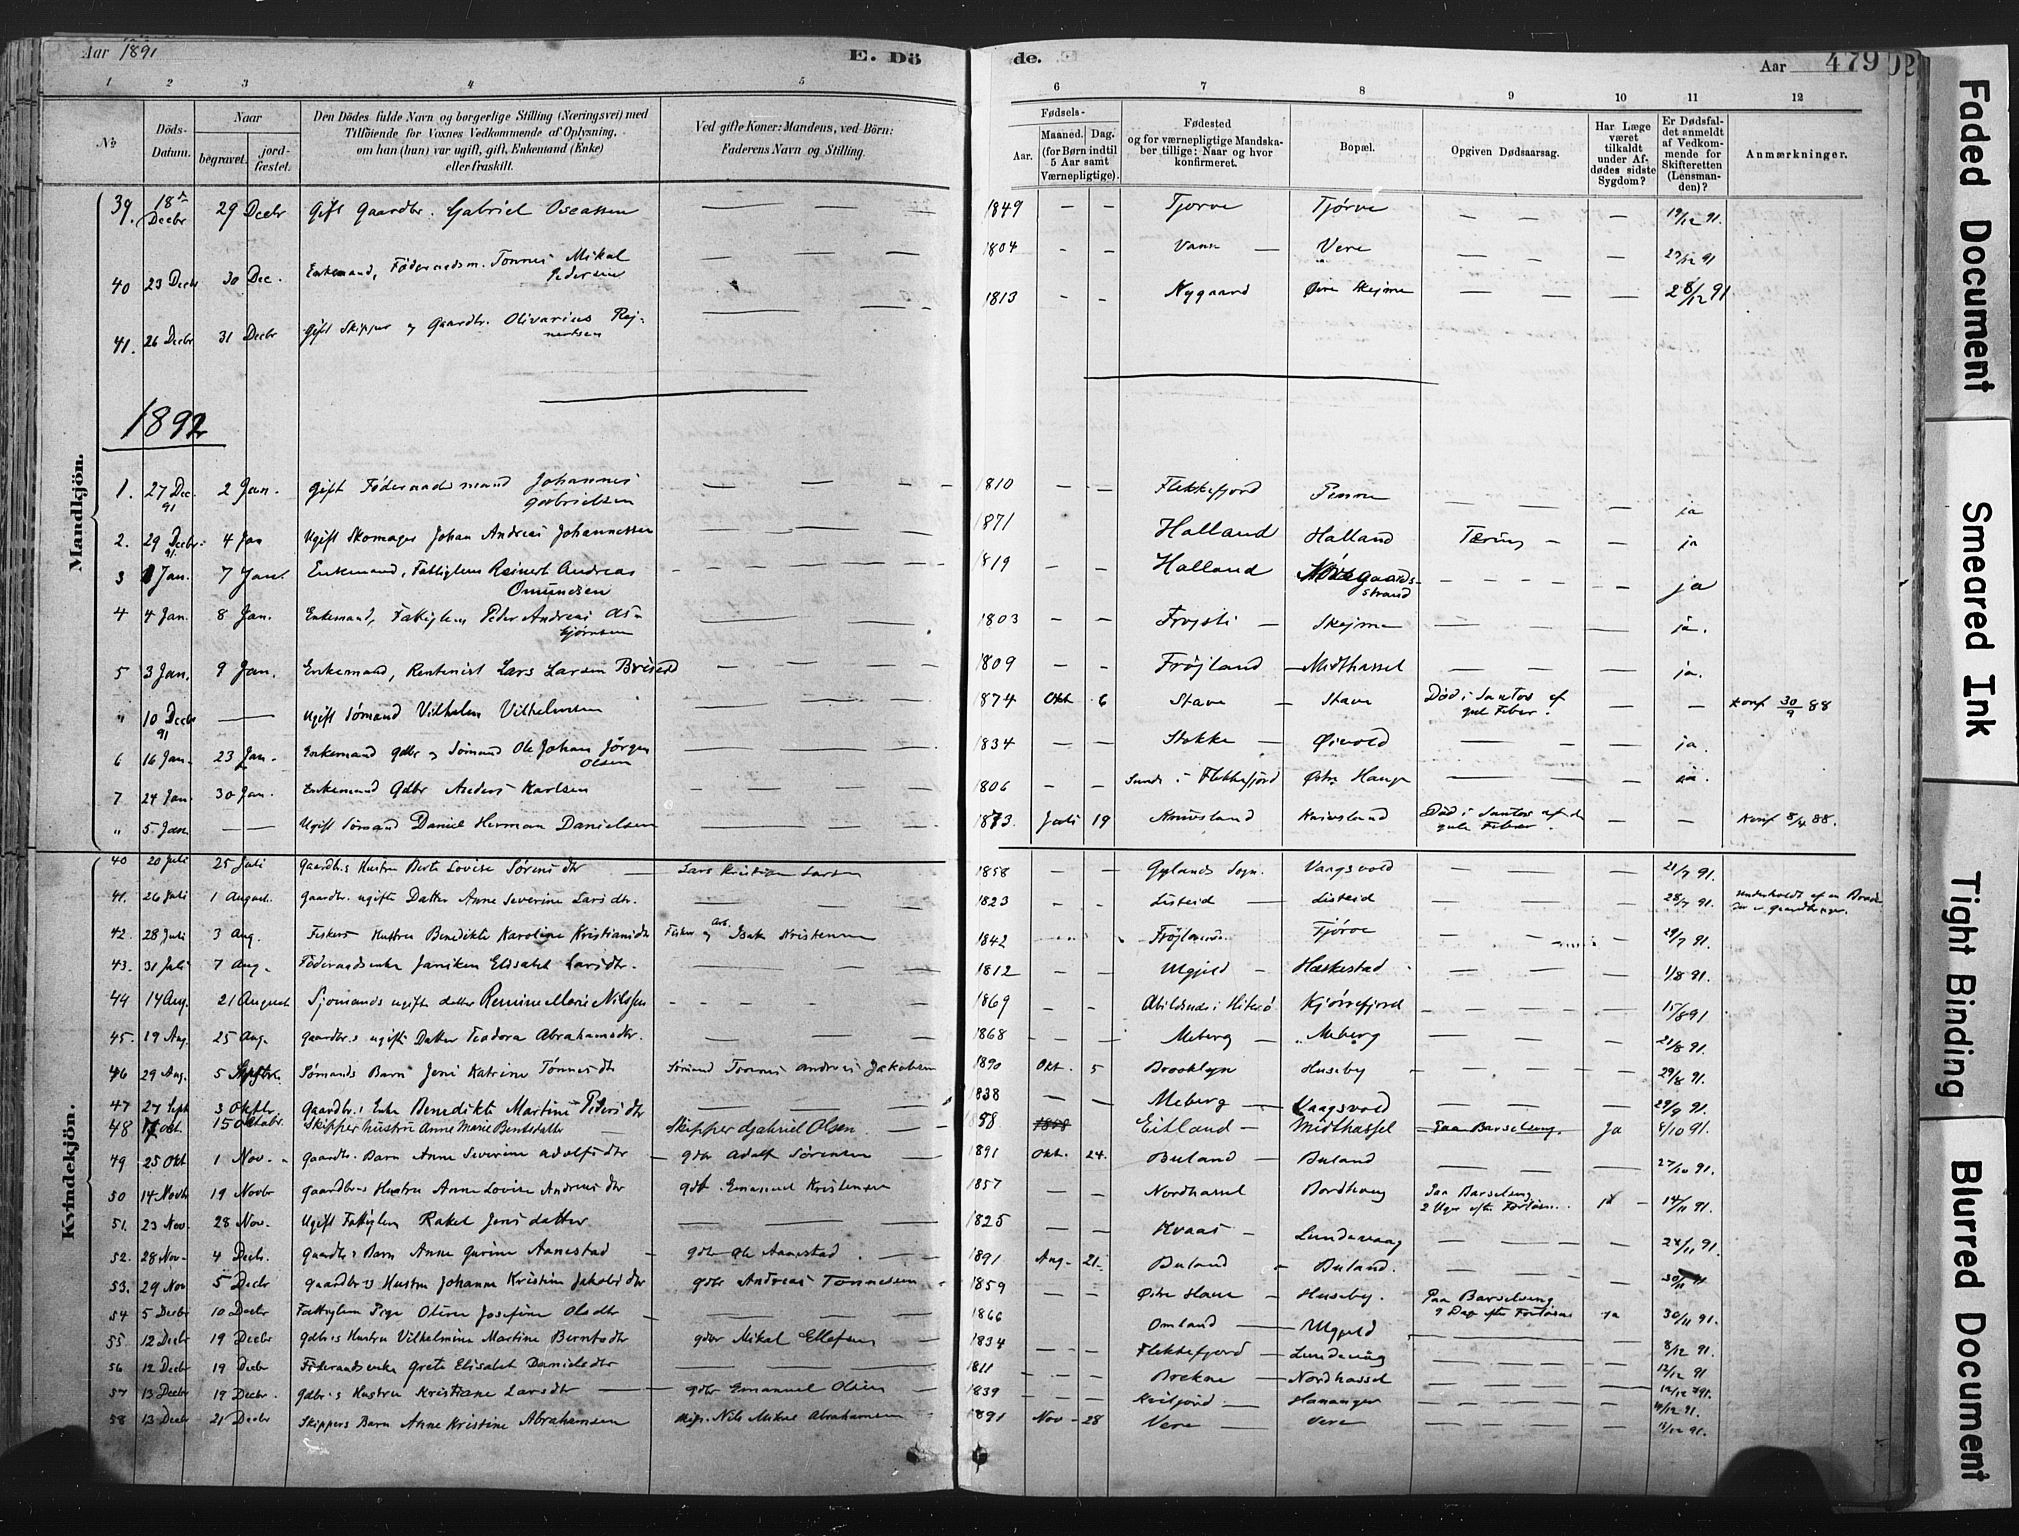 Aar 1891
E. Dö
de.
Aar
479
02
1 2 3 4 5
6 7 8 9 10 11 12
No
Döds-Datum.
Naar
begravet.
jord-fæstet.
Den Dödes fulde Navn og borgerlige Stilling (Næringsvei) med
Tilföiende for Voxnes Vedkommende af Oplysning,
om han (hun) var ugift, gift, Enkemand (Enke)
eller fraskilt.
Ved gifte Koner: Mandens, ved Börn:
Faderens Navn og Stilling.
Fødsels-
Aar.
Maaned. Dag.
(for Børn indtil
5 Aar samt
Værnepligtige).
Fødested
og for værnepligtige Mandska-
ber tillige: Naar og hvor
konfirmeret.
Bopæl.
Opgiven Dødsaarsag.
Har Læge
været
tilkaldt
under Af-
dødes sidste
Sygdom?
Er Dødsfal-
det anmeldt
af Vedkom-
mende for
Skifteretten
(Lensman-
den)?
Anmærkninger.
Mandkjön.
39. 18de Decbr 29 Decbr Gift Gaardbr. Gabriel Oseassen — 1849 — — Tjorve Tjörve — — — 19/12 91.
40 23 Decbr 30 Dec. Enkemand, Föderaadsm. Tonnes Mikal Pedersen — 1804 — — Vere — — 23/12 91
41. 26 Decbr 31 Decbr Gift Skipper og Gaardbr. Olivarius Rejnertsen — 1813 — — Nygaard Øvre Skejme — — 28/12 91
1892
1. 27 Dec. 91 2 Jan. Gift Föderaadsmand Johannes Gabrielsen — 1810 — — Flekkefjord Penne — — ja
2. 29 Decbr. 91. 4 Jan Ugift Skomager Johan Andreas Johannessen — 1871 Halland Halland Tæring — — ja
3 1 Jan. 7 Jan. Enkemand, Fattiglem Reinert Andreas Omundsen — 1819 — — Halland Ødegaards-strand — — ja
4 4 Jan. 8 Jan. Enkemand, Fattiglem Peder Andreas Asbjörnsen — 1803 — — Skejme — — ja.
5 3 Jan. 9 Jan. Enkemand, Rentenist Lars Larsen Briseid — 1809 — — Fröjland — Midthassel — — ja.
" 10 Decbr 91 — Ugift Sömand Vilhelm Vilhelmsen — 1874 Okt 6 Stave — Stave Död i Santos af gul Feber. — — Konf 30/9 88
6 16 Jan. 23 Jan. Enkemand Gdbr og Sömand Ole Johan Jörgen Olsen — 1834 — — Stokke — Öivold — — ja.
7 24 Jan. 30 Jan. Enkemand Gdbr Anders Karlsen — 1806 — — Sunde i Flekkefjord Östre Hauge — — ja.
" 5 Jan. — Ugift Sömand Daniel Herman Danielsen — 1873. Juli 19 Knivsland Knivsland Död i Santos af d gule Feber. — — Konf 8/4 88.
Kvindekjön.
40 20 Juli 25 Juli Gaardbr.s Hustru Berte Lovise Sörensdtr — Lars Kristian Larsen 1858 — — Gylands Sogn. Vaagsvold — — 21/7 91.
41. 26 Juli 1 August. Gaardbr. ugifte Datter Anne Severine Larsdtr. — 1823 — — Listeid — Listeid — — 28/7 91. underholdt af en
42. 28 Juli 3 Aug. Fiskers Hustru Benedikte Karoline Kristiansdtr Fisker og Arb. Isak Kristensen 1842 Tjörve — — 29/7 91.
43. 31 Juli 7 Aug. Föderaadsenke Janiken Elisabet Larsdtr. — 1812 — — Ulgjeld — Hæskestad — — 1/8 91.
44 14 Aug. 21 August Sjömands ugifte datter Remine Marie Nilsen — 1869 — — Abildsnes i Hiterö Kjörrefjord — — 15/8 91
45. 19 Aug. 25 Aug. Gaardbr.s ugifte Datter Teodora Abrahamsdtr. — 1868 — — Meberg — Meberg — — 21/8 91.
46 29 Aug. 5 Septbr. Sömands Barn Jeni Katrine Tönnesdtr Sömand Tönnes Andreas Jakobsen 1890 Okt. 5 Brooklyn Huseby — — 29/8 91.
47 27 Sept 3 Oktbr. Gaardbr.s Enke Benedikte Martine Pedersdtr — 1838 — — Meberg — Vaagsvold — — 29/9 91.
48 Okt. 15 Oktobr. Skipperhustru Anne Marie Berntsdatter — Skipper Gabriel Olsen 1858 Eitland — Midthassel Paa Barselseng. Ja 8/10 91.
49 25 Okt 1 Nov. Gaardbr. Barn Anne Severine Adolfsdtr — Gdbr Adolf Sörensen — 1891 Okt. 24. Buland — Buland — — 27/10 91.
50 14 Novbr 19 Novbr Gaardbr.s Hustru Anne Lovise Andreasdtr Gdb. Emanuel Kristensen 1857 — — Nordhassel Bordhoug Paa Barselseng 2 Uger efter Forlösn. ja 14/11 91.
51. 23 Nov 28 Nov. Ugift Fattiglem Rakel Jensdatter. — 1825 — — Kvaas — Lundevaag — — 24/11 91.
52. 28 Nov. 4 Decbr. Gaardbr.s Barn Anne Gurine Aanestad — Gdbr Ole Aanestad 1891 Aug. 21. Buland — Buland. — — 30/11 91
53. 29 Nov 5 Decbr Gaardbr.s Hustru Johanne Kristine Jakobsdtr Gdbr Andreas Tönnessen 1859 — — Östre Hauge — Huseby. Paa Barselseng 9 Dage efter Forlösn ja 30/11 91.
54 5 Decbr 10 Decbr Fattiglem Pige Oline Josefine Olsdtr — 1866 Omland — Ulgjeld — — 8/12 91.
55. 12 Decbr 19 Decbr Gdbr.s Hustru Vilhelmine Martine Berntsdtr Gdbr Mikal Ellefsen 1834 — — Flekkefjord — Lundevaag — — 12/12 91
56 12 Decbr 19 Decbr Föderaadsenke Grete Elisabet Danielsdtr — 1811 — — Brekne — Nordhassel — — 12/12 91.
57 13 Decbr 19 Decbr. Gdbr.s Hustru Kristiane Larsdtr — Gdbr Emanuel Olsen 1839 — — — Hananger — — 14/12 91.
58 13 Decbr 21 Decbr Skippers Barn Anne Kristine Abrahamsen Skip. Nils Mikal Abrahamsen 1891 Nov 28 Vere — Vere — — 13/12 91.
Faded Document
Smeared Ink
Tight Binding
Blurred Document